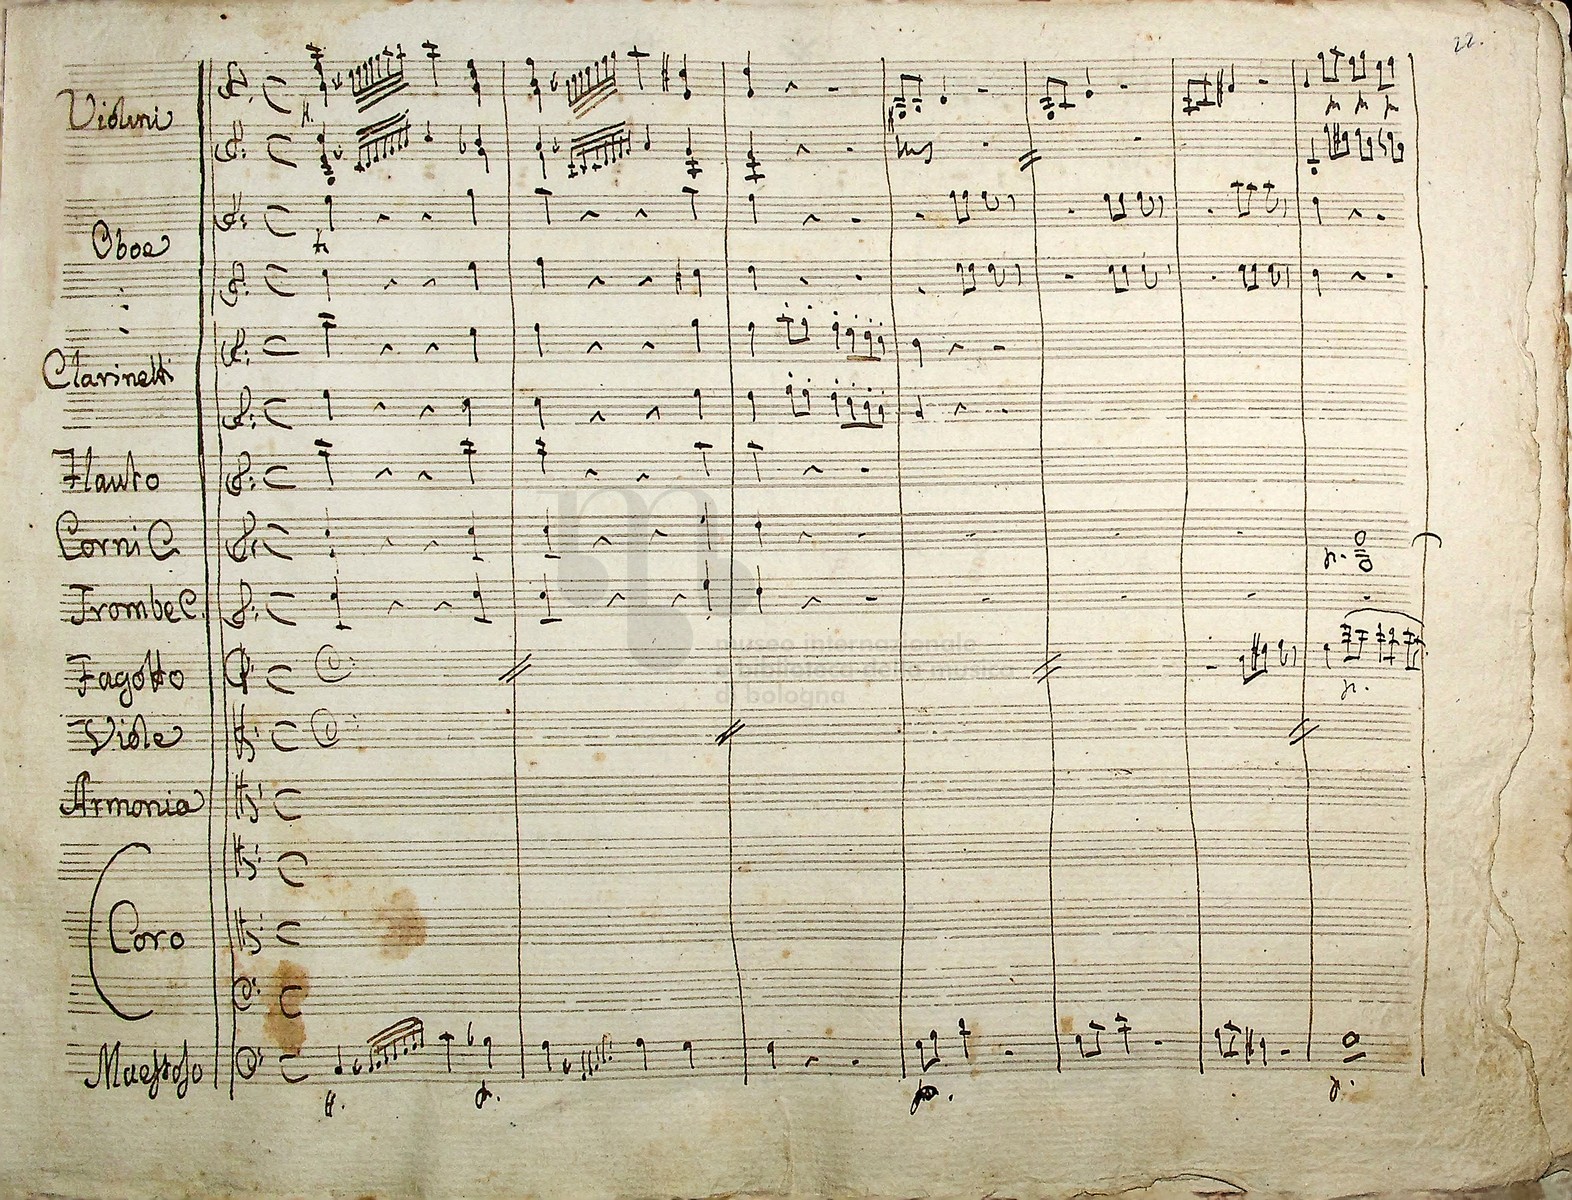 22.
Violini
Oboe
Clarinetti
Flauto
Corni C
Trombe C.
Fagotto
Viole
Armonia
Coro
Maestoso
museo internazionale
e biblioteca della musica
di bologna